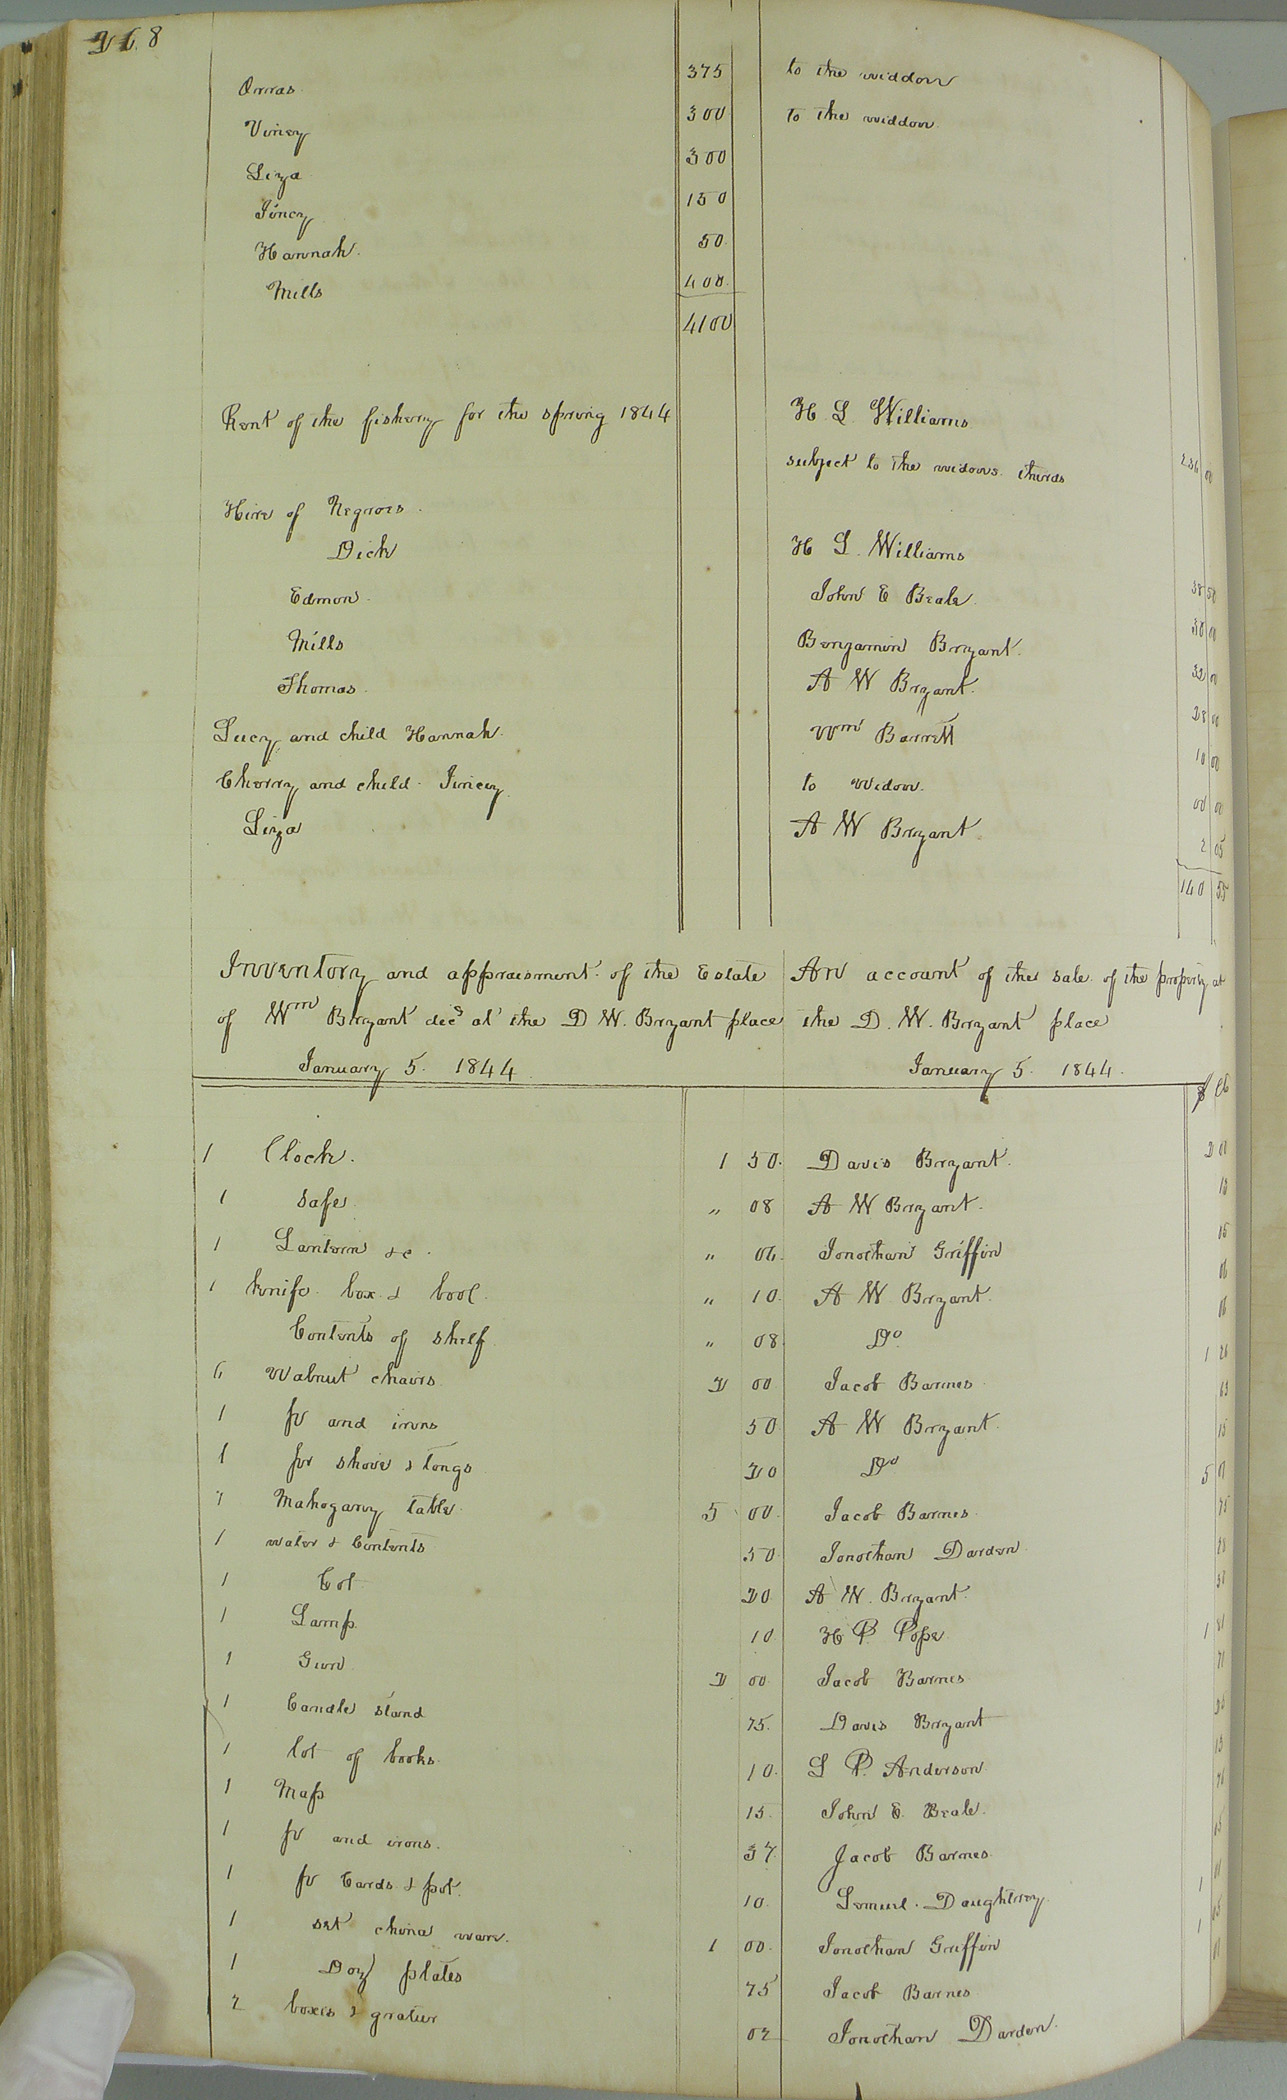 268
Orras 375 to the widdow
Viney 300 to the widdow
Liza 300
Jincy 150
Hannah 50
Mills 400
4100
Rent of the fishery for the spring 1844 H L Williams
subject to the widows thirds
Hire of Negroes
Dick H L Williams
Edmon John E Beale 38 50
Mills Benjamin Bryant 30 00
Thomas A W Bryant 32 00
Lucy and child Hannah Wm Barrett 28 00
Cherry and child Jincy to widow 10 00
Liza A W Bryant 00 00
2 05
140 55
Inventory and appraisment of the Estate An account of the sale of the property at
of Wm Bryant decs at the D W. Bryant place the D. W. Bryant place
January 5. 1844 January 5. 1844.
$ Cts
1 Clock. 1 50 Davis Bryant. 2 00
1 Safe " 08 A W Bryant.
1 Lantern &c " 06 Jonothan Griffin 15
1 knife box & " 10 A W Bryant 06
Contents of shelf " 08 Do
6 Walnut chairs 2 00 Jacob Barnes 1
1 pr and irons 50 A W Bryant
1 pr shove & tongs 20 Do 15
1 Mahogany table 5 00 Jacob Barnes 5
1 water & Contents 50 Jonothan Darden
1 Cot 20 A W. Bryant
1 Lamp 10 H P. Pope
1 Gun 2 00 Jacob Barnes 1
1 Candle stand 75 Davis Bryant
1 lot of books 10 S P. Anderson
1 Map 15 John E. Beale
1 pr and irons 37 Jacob Barnes
1 pr Cards & pot 10 Lemuel Daughtrey
1 set china ware 1 00 Jonothan Griffin 1
1 Doz plates 75 Jacob Barnes 1
2 boxes & grater 02 Jonothan Darden